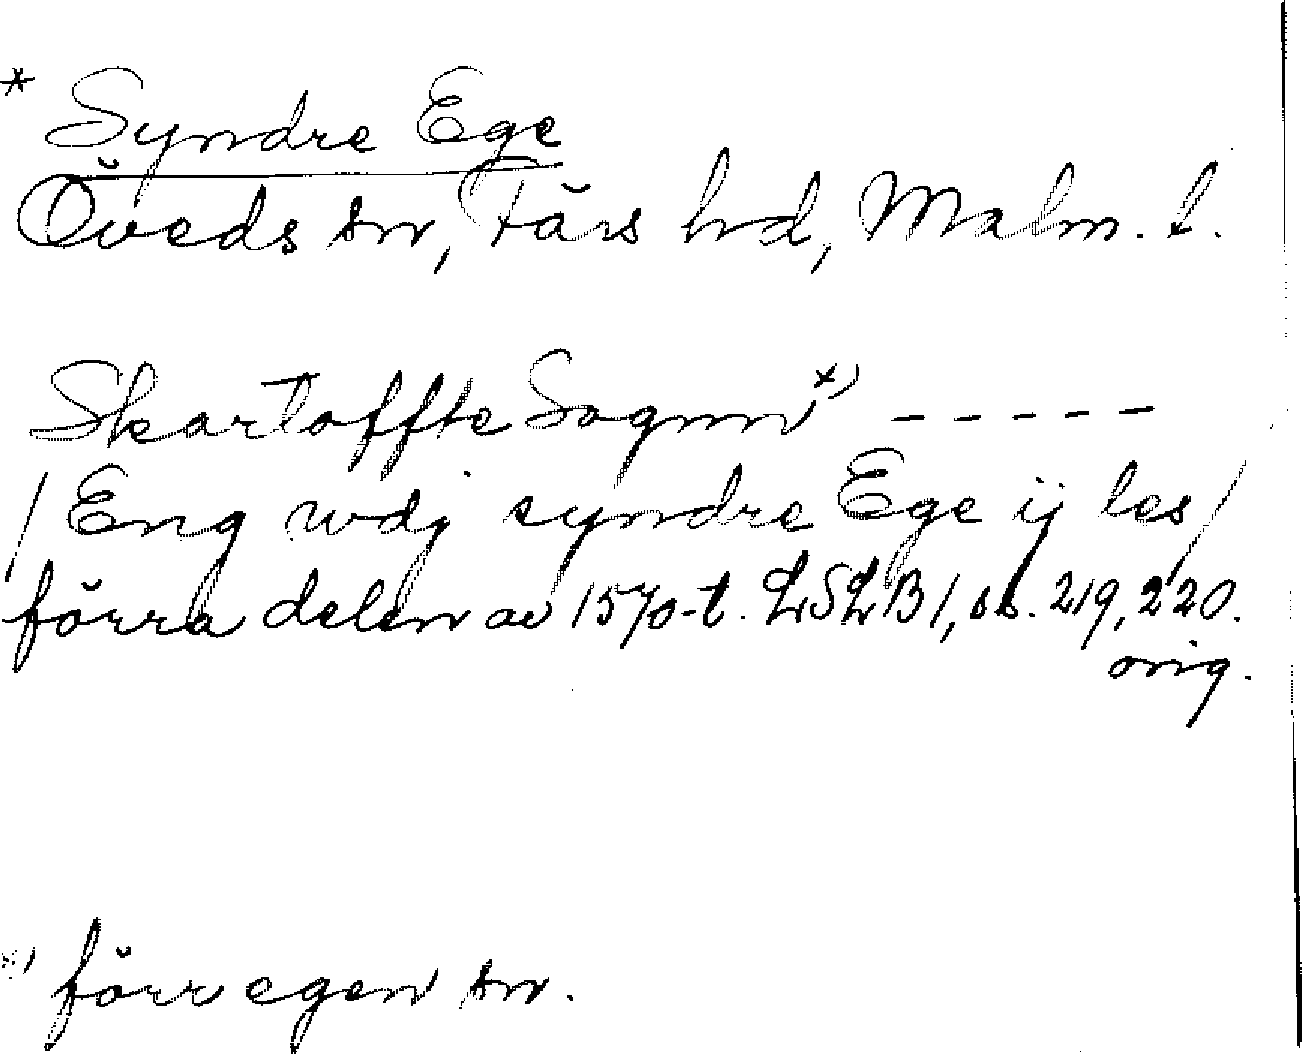 * Syndre Ege
Öveds sn, Färs hd, Malm. l.
Skartoffte Sognn x) - - - - -
/ Eng wdj syndre Ege ij les /
förra delen av 1570-t. LSLB 1, ss. 219, 220.
orig.
x) förr egen sn.